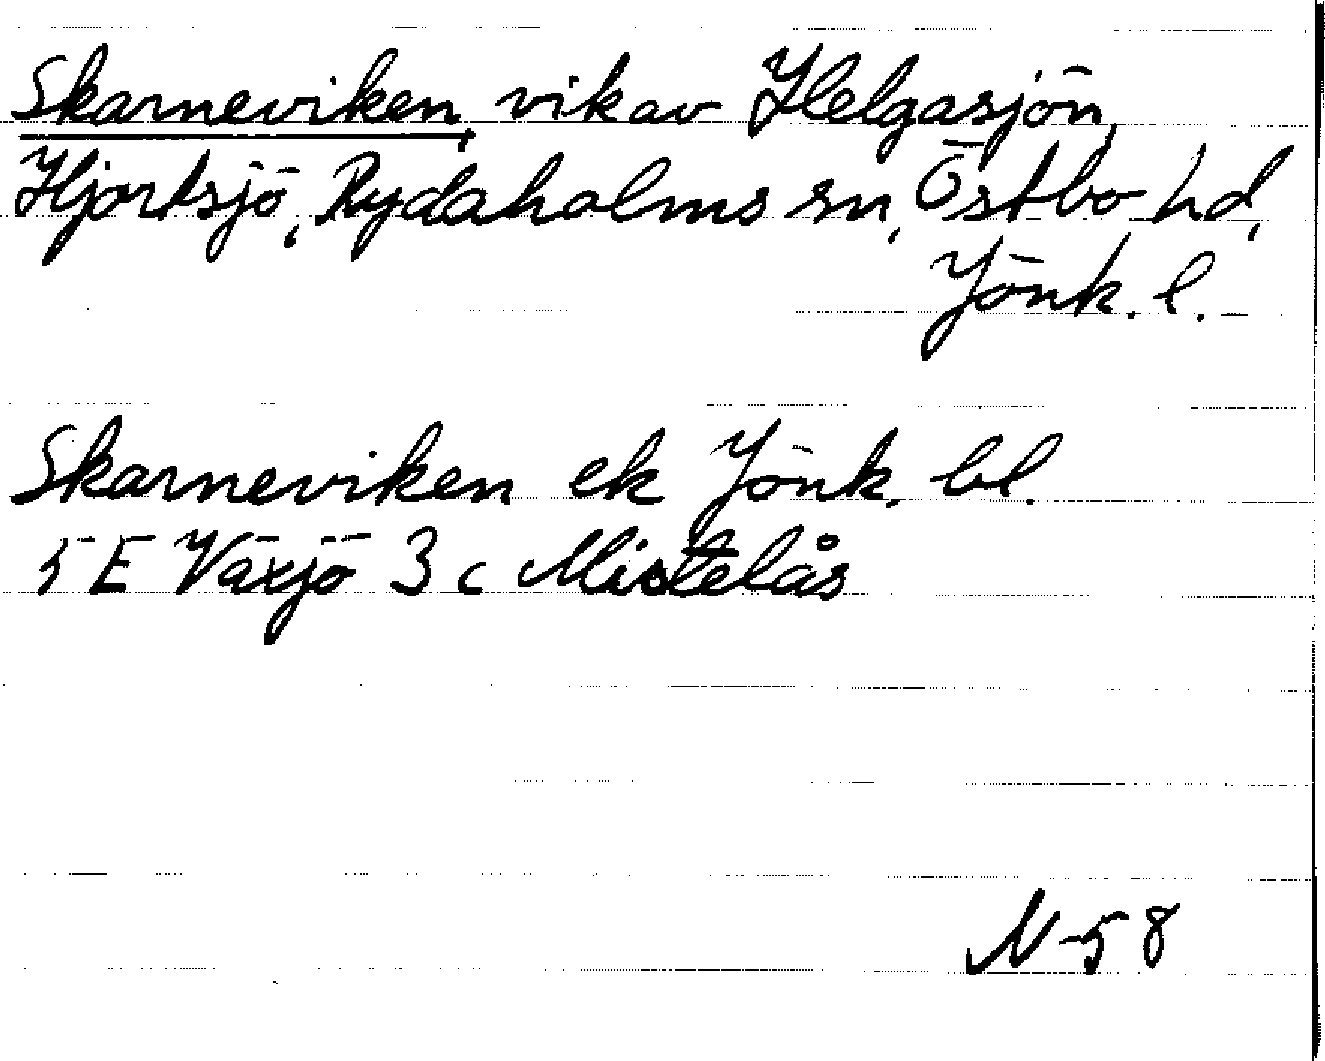 Skarneviken, vik av Helgasjön,
Hjortsjö, Rydaholms sn, Östbo hd,
Jönk. l.
Skarneviken ek Jönk. bl.
5 E Växjö 3 c Mistelås
N-58